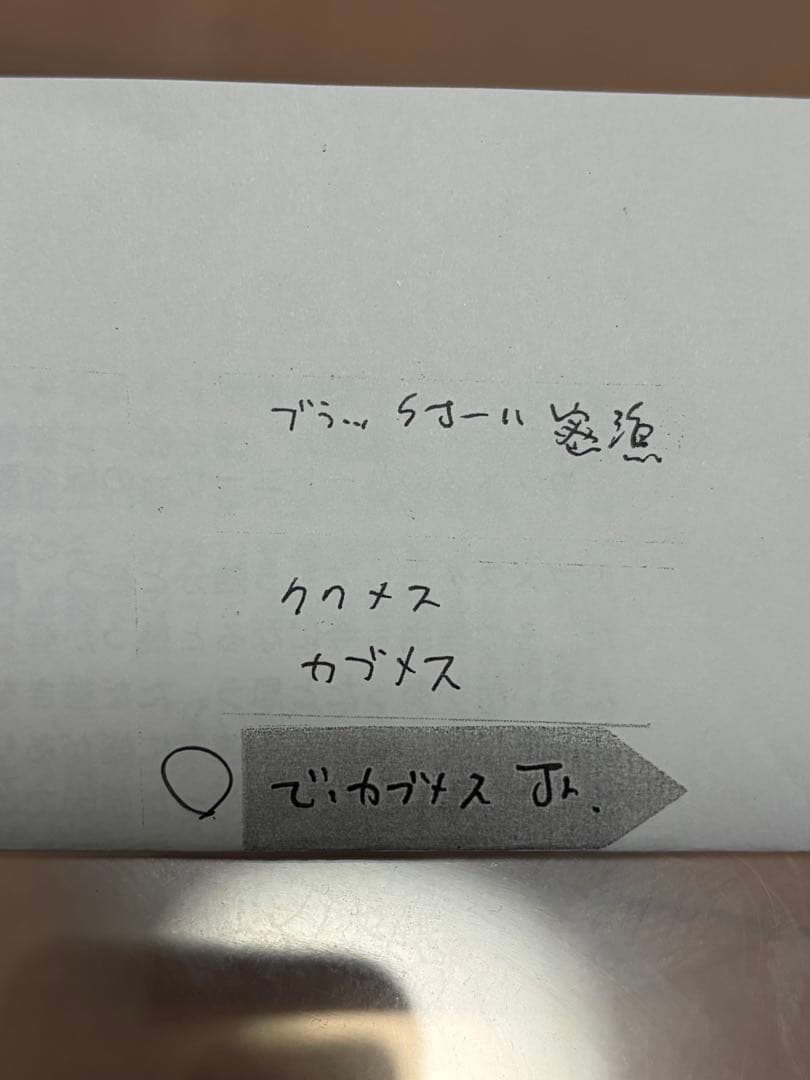 ブラックホール密漁
クワメス
カブメス
でぃカブメス Jr.